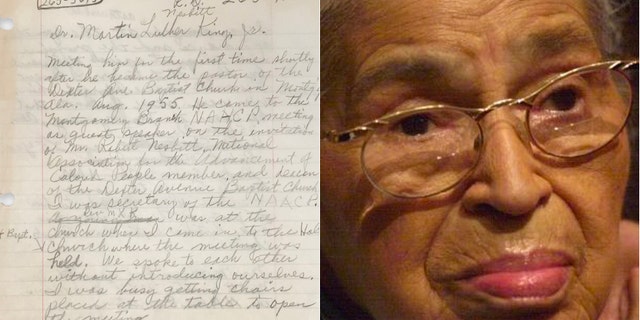 263-5073
R. A. 263-
Nesbitt
Dr. Martin Luther King, Jr.
Meeting him for the first time shortly
after he became the pastor of the
Dexter Ave Baptist Church in Montg,
Ala. Aug. 1955. He came to the
Montgomery Branch NAACP meeting
as guest speaker, on the invitation
of Mr. Nesbitt, National
Association for the Advancement of
Colored People member, and
of the Dexter Avenue Baptist Church
I was secretary of the NAACP.
I was at the
church when I came in to the
+ Bapt. Church where the meeting was
held. We spoke to each other
without introducing ourselves.
I was busy getting chairs
placed at the table to open
the meeting